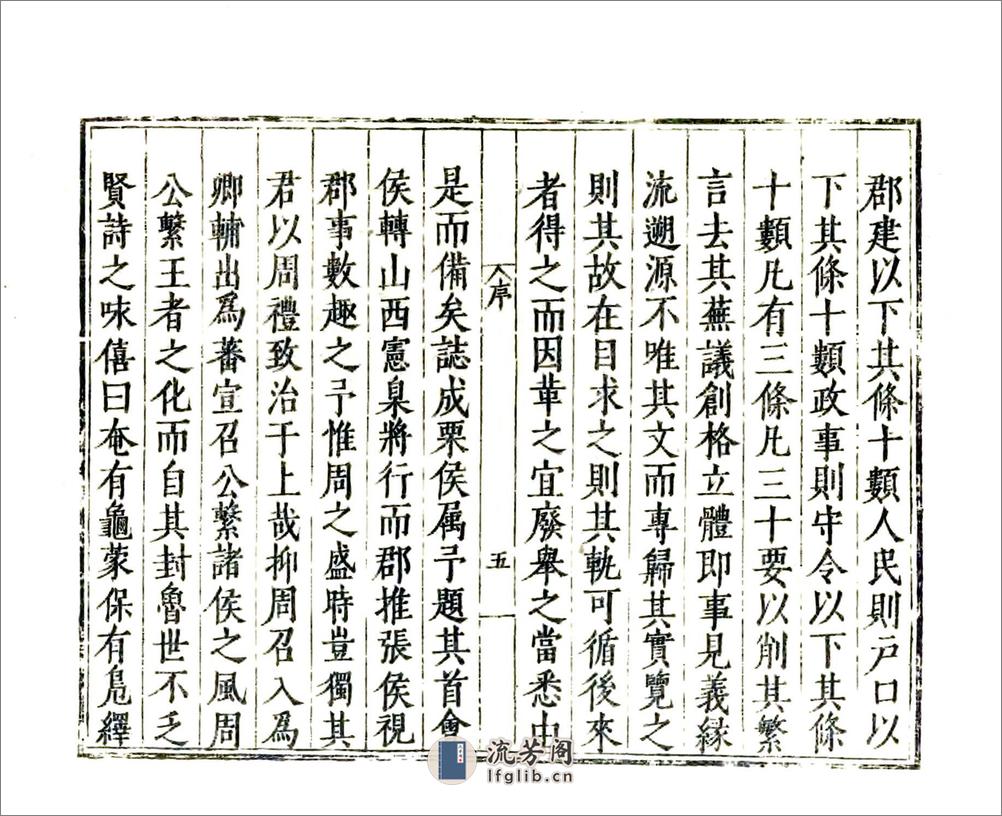 郡建以下其條十類人民則戸口以
下其條十類政事則守令以下其條
十類凡有三條凡三十要以削其繁
言去其蕪議創格立體即事見義縁
流遡源不唯其文而專歸其實覽之
則其故在目求之則其軌可循後來
者得之而因革之宜廢舉之當悉由
序
五
是而備矣誌成栗侯属予題其首會
侯轉山西憲臬將行而郡推張侯視
郡事數趣之予惟周之盛時豈獨其
君以周禮致治于上哉抑周召入為
卿輔出為蕃宣召公繫諸侯之風周
公繫王者之化而自其封魯世不乏
賢詩之味僖曰奄有龜蒙保有鳧繹
流芳阁
lfglib.cn